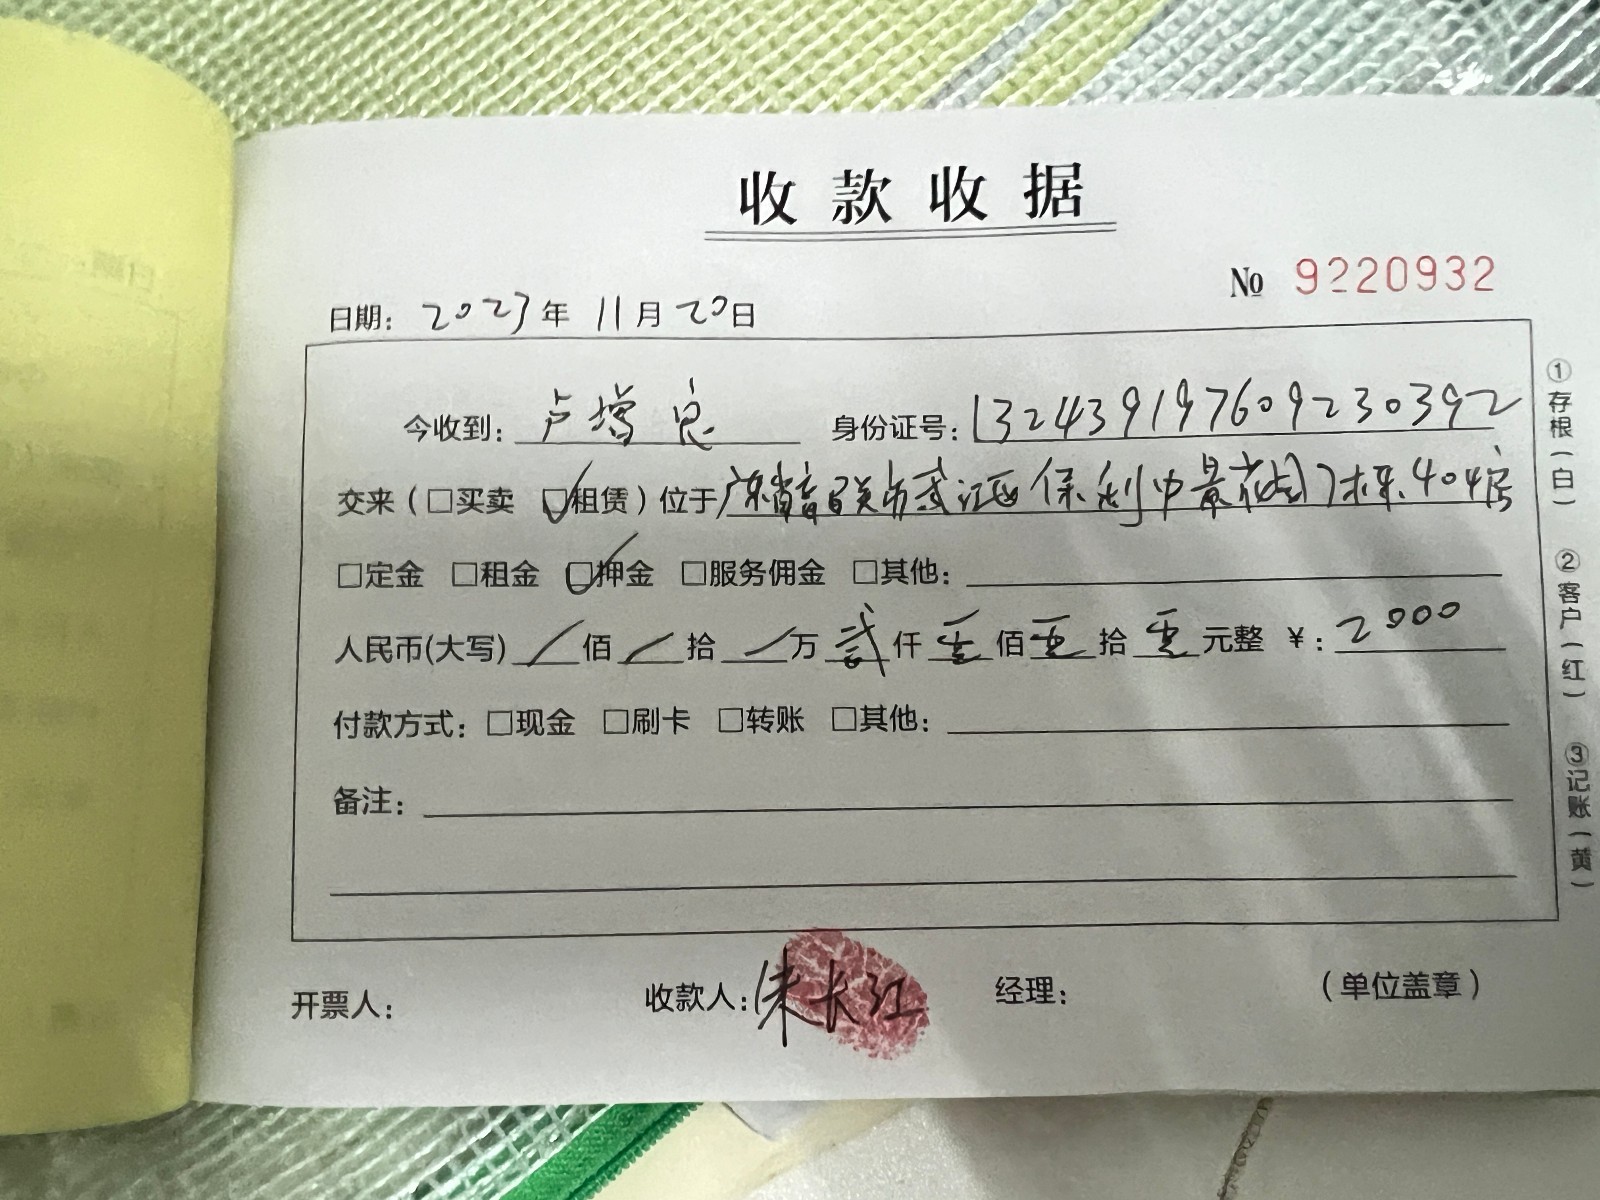 收款收据
№ 9220932
日期: 2023年 11月 20日
今收到: 卢增良 身份证号: 132439197609230392
交来 (□买卖 ☑租赁) 位于广东省 保利中景花园7栋404房
□定金 □租金 ☑押金 □服务佣金 □其他:
人民币(大写) / 佰 / 拾 / 万 贰 仟 零 佰 零 拾 零 元整 ¥: 2000
付款方式: □现金 □刷卡 □转账 □其他:
备注:
开票人: 收款人: 朱长江 经理: (单位盖章)
①存根(白) ②客户(红) ③记账(黄)